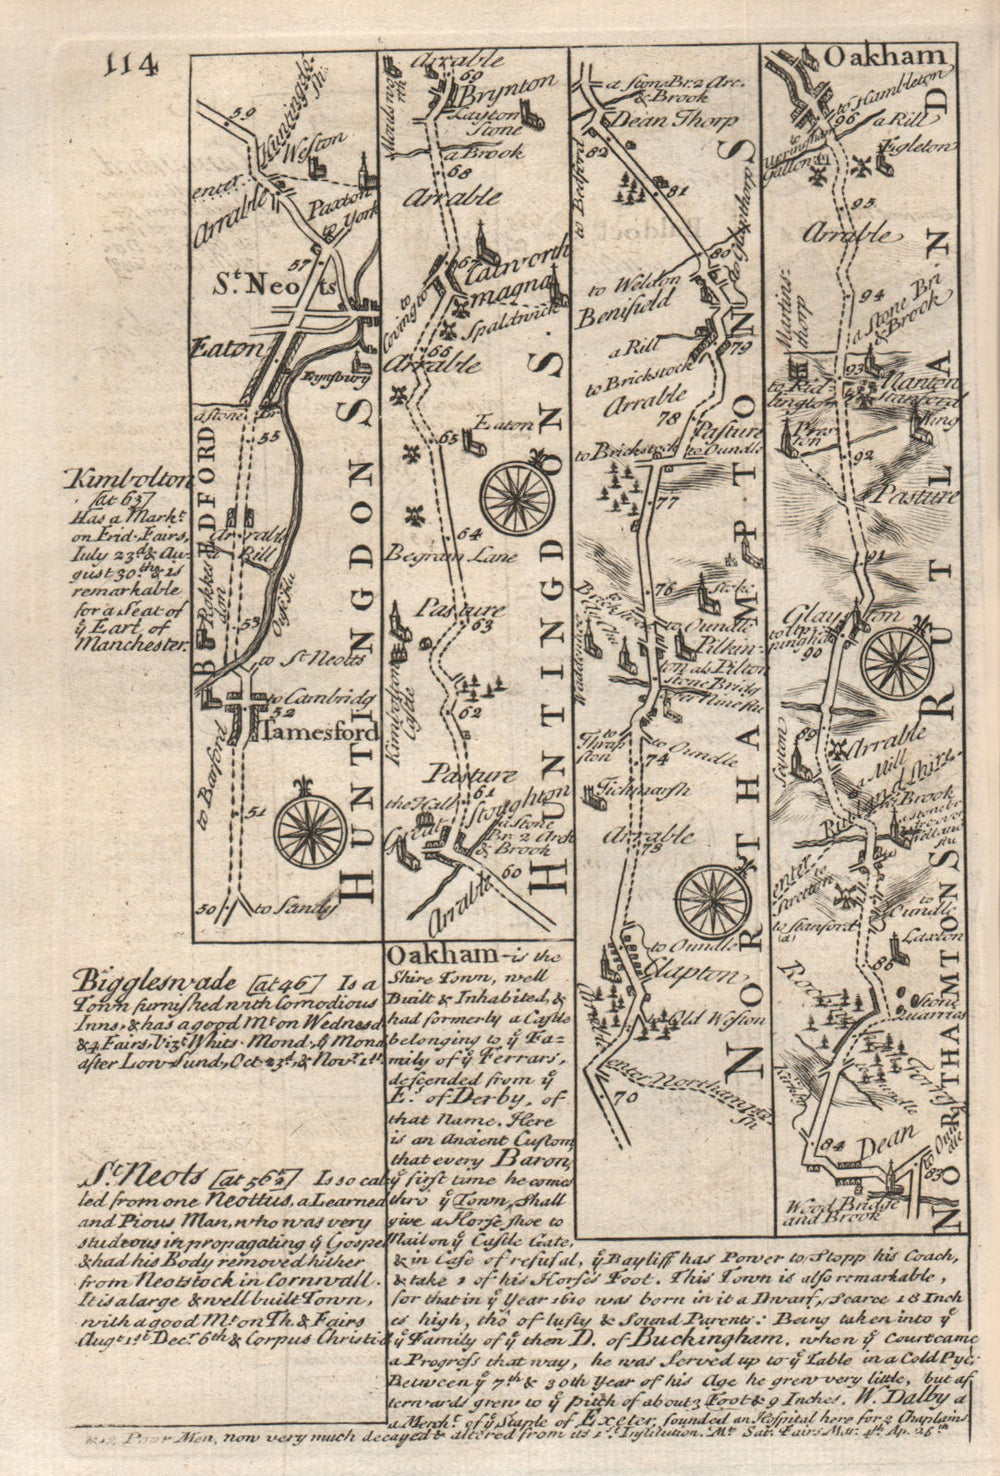 114
59
Huntingdo:
Sh:
Weston
enter
Arrable
Paxton
to York
57
St. Neots
Eaton
Eynsbury
a stone Br
55
BEDFORD
Arrable
Rill
53
to St Neotts
to Cambridg
52
Tamesford
to Barford
51
50
to Sandy
HUNTINGDON S
Kimbolton
[at 63]
Has a Markt
on Frid. Fairs,
July 23d & Au-
gust 30th & is
remarkable
for a Seat of
ye Earl of
Manchester.
Arrable
69
Brynton
Layton
Stone
a Brook
68
Arrable
67
Catworth
magna
to
Covington
Spaldwick
66
Arrable
65
Eaton
64
Begram Lane
Pasture
63
Kimbolton
Castle
62
Pasture
61
the Hall
Great
Stoughton
a Stone
Br. 2 Arch
& Brook
60
Arrable
HUNTINGDON S.
a Stone Br. 2 Arc.
& Brook
Dean Thorp
82
81
80
to Weldon
Benifield
a Rill
79
to Brickstock
Arrable
78
Pasture
to Brickstock
to Oundle
77
76
Stoke
to Oundle
Pilkin-
ton als Pilton
stone Bridg
over Nine flu
to
Thrap
ston
to Oundle
74
Tichmarsh
Arrable
73
to Oundle
Clapton
Old Weston
enter Northampton
Sh
70
NORTHAMPTON S
Oakham
to Hambleton
96
a Rill
Egleton
Gallows
95
Arrable
94
a Stone Br.
& Brook
Martins-
thorp
93
Manton
to Rid-
lington
Stanford
King
Pres-
ton
92
Pasture
91
Glayston
to Up-
pingham
90
89
Arrable
Seyton
a Mill
Rutlandshire
& Brook
enter
to
Oundle
to Stanford
86
Laxton
Stone
Quarries
84
Dean
83
Wood Bridge
and Brook
RUTLAND
NORTHAMTON S
Biggleswade [at 46] Is a
Town furnished with Comodious
Inns, & has a good Mt on Wednesd
& 4 Fairs, Vizt Whits. Mond. ye Mond
after Low-Sund, Oct. 23d, & Novr 1th
St. Neots [at 56 2/2] Is so cal
led from one Neottus, a Learned
and Pious Man, who was very
studious in propagating ye Gospel
& had his Body removed hither
from Neotstock in Cornwall.
It is a large & well built Town,
with a good Mt on Th. & Fairs
Augt 1st Decr 6th & Corpus Christi d
Oakham- is the
Shire Town, well
Built & Inhabited, &
had formerly a Castle
belonging to ye Fa-
mily of ye Ferrars,
descended from ye
Es. of Derby, of
that Name. Here
is an Ancient Custom,
that every Baron,
ye first time he comes
thro ye Town, shall
give a Horse shoe to
Nail on ye Castle Gate,
& in Case of refusal, ye Bayliff has Power to Stopp his Coach,
& take 1 of his Horses Foot. This Town is also remarkable,
for that in ye Year 1610 was born in it a Dwarf, Scarce 18 Inch
es high, tho' of lusty & Sound Parents: Being taken into ye
ye Family of ye then D. of Buckingham, when ye Court came
a Progress that way, he was Served up to ye Table in a Cold Pye:
Between ye 7th & 30th Year of his Age he grew very little, but af
terwards grew to ye pitch of about 3 Foot & 9 Inches. W. Dalby a
a Mercht of ye Staple of Exeter, founded an Hospital here for 2 Chaplains
& 12 Poor Men, now very much decayed & altered from its 1st Institution. Mt Sat. Fairs Mar. 4th Ap. 25th